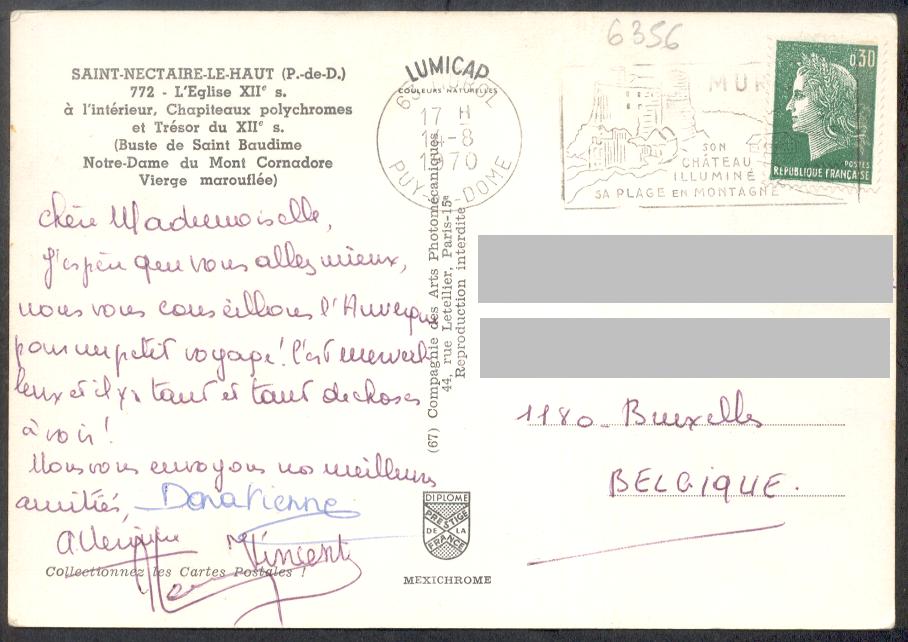 6356
SAINT-NECTAIRE-LE-HAUT (P.-de-D.)
772 - L'Eglise XIIe s.
à l'intérieur, Chapiteaux polychromes
et Trésor du XIIe s.
(Buste de Saint Baudime
Notre-Dame du Mont Cornadore
Vierge marouflée)
LUMICAP
COULEURS NATURELLES
63
17 H
14-8
1970
PUY DE DOME
MUR
SON
CHÂTEAU
ILLUMINÉ
SA PLAGE EN MONTAGNE
0,30
POSTES
REPUBLIQUE FRANÇAISE
chère Mademoiselle,
J'espère que vous allez mieux,
nous vous conseillons l'Auvergne
pour un petit voyage! C'est merveil
leux et il y a tant et tant de choses
à voir!
Nous vous envoyons nos meilleures
amitiés, Donatienne
Vincent
Collectionnez les Cartes Postales !
(67) Compagnie des Arts Photomécaniques
44, rue Letellier, Paris-15e
Reproduction interdite
DIPLOME
PRESTIGE
DE LA
FRANCE
MEXICHROME
1180 - Bruxelles
BELGIQUE.